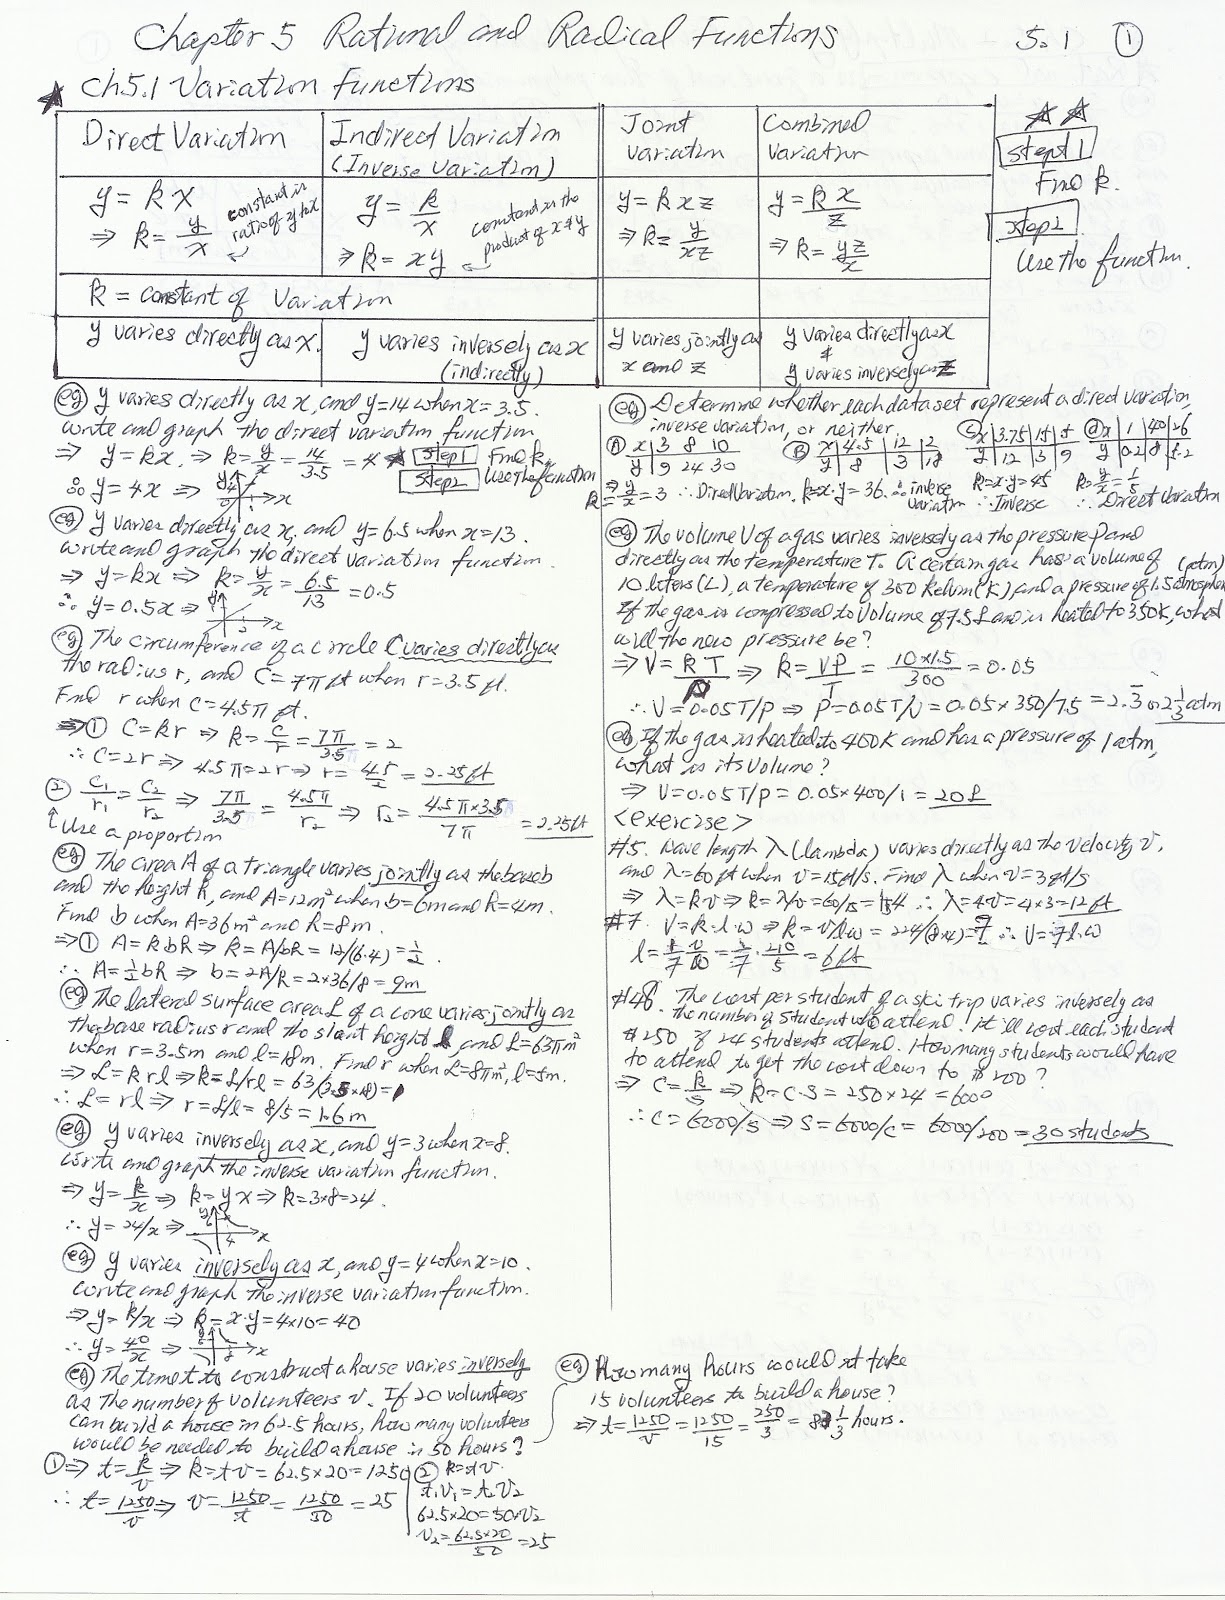 Chapter 5 Rational and Radical Functions 5.1 ①
★ Ch5.1 Variation Functions
Direct Variation
Indirect Variation
(Inverse Variation)
Joint
Variation
Combined
Variation
y = kx
⇒ k = y/x
constant is
ratio of y to x
y = k/x
⇒ k = xy
constant is the
product of x & y
y = kxz
⇒ k = y/xz
y = kx/z
⇒ k = yz/x
k = constant of Variation
y varies directly as x.
y varies inversely as x
(indirectly)
y varies jointly as
x and z
y varies directly as x
&
y varies inversely as z
★ ★
Step 1
Find k.
Step 2
Use the function.
eg y varies directly as x, and y=14 when x=3.5.
write and graph the direct variation function
⇒ y=kx, ⇒ k=y/x=14/3.5=4 ★ Step 1 Find k
Step 2 Use the function
∴ y=4x ⇒
eg y varies directly as x, and y=6.5 when x=13.
write and graph the direct variation function.
⇒ y=kx ⇒ k=y/x=6.5/13=0.5
∴ y=0.5x ⇒
eg The circumference of a circle C varies directly as
the radius r, and C=7π ft when r=3.5 ft.
Find r when C=4.5π ft.
⇒① C=kr ⇒ k=C/r=7π/3.5=2
∴ C=2r ⇒ 4.5π=2r ⇒ r=4.5/2=2.25ft
② C₁/r₁=C₂/r₂ ⇒ 7π/3.5=4.5π/r₂ ⇒ r₂=4.5π×3.5/7π=2.25ft
↑ Use a proportion
eg The area A of a triangle varies jointly as the base b
and the height h, and A=12m² when b=6m and h=4m.
Find b when A=36m² and h=8m.
⇒① A=kbh ⇒ k=A/bh=12/(6·4)=1/2.
∴ A=1/2bh ⇒ b=2A/h=2×36/8=9m
eg The lateral surface area L of a cone varies jointly as
the base radius r and the slant height l, and L=63πm²
when r=3.5m and l=18m. Find r when L=8πm², l=5m.
⇒ L=krl ⇒ k=L/rl=63/(3.5×18)=1
∴ L=rl ⇒ r=L/l=8/5=1.6m
eg y varies inversely as x, and y=3 when x=8.
write and graph the inverse variation function.
⇒ y=k/x ⇒ k=yx ⇒ k=3×8=24.
∴ y=24/x ⇒
eg y varies inversely as x, and y=4 when x=10.
write and graph the inverse variation function.
⇒ y=k/x ⇒ k=x·y=4×10=40
∴ y=40/x ⇒
eg The time t to construct a house varies inversely
as the number of volunteers v. If 20 volunteers
can build a house in 62.5 hours, how many volunteers
would be needed to build a house in 50 hours?
①⇒ t=k/v ⇒ k=tv=62.5×20=1250
∴ t=1250/v ⇒ v=1250/t=1250/50=25
② k=tv
t₁v₁=t₂v₂
62.5×20=50·v₂
v₂=62.5×20/50=25
eg Determine whether each data set represent a direct variation,
inverse variation, or neither.
Ⓐ x 3 8 10
y 9 24 30
Ⓑ x 4.5 12 2
y 8 3 18
Ⓒ x 3.75 15 5
y 12 3 9
ⓓ x 1 40 26
y 0.2 8 5.2
⇒ k=y/x=3 ∴ Direct Variation. k=x·y=36. ∴ inverse variatn k=x·y=45 ∴ Inverse k=y/x=1/5 ∴ Direct Variation
eg The volume V of a gas varies inversely as the pressure P and
directly as the temperature T. A certain gas has a volume of
10 liters (L), a temperature of 300 kelvin (K) and a pressure of 1.5 atmosphere (atm)
If the gas is compressed to volume of 7.5L and is heated to 350K, what
will the new pressure be?
⇒ V=kT/P ⇒ k=VP/T=10×1.5/300=0.05
∴ V=0.05T/P ⇒ P=0.05T/V=0.05×350/7.5=2.3̄ or 2 1/3 atm
eg If the gas is heated to 400K and has a pressure of 1 atm,
what is its volume?
⇒ V=0.05T/P=0.05×400/1=20L
<exercise>
#5. Wave length λ (lambda) varies directly as the velocity v,
and λ=60ft when v=15ft/s. Find λ when v=3ft/s
⇒ λ=kv ⇒ k=λ/v=60/15=4 ∴ λ=4v=4×3=12ft
#7. V=k·l·w ⇒ k=V/lw=224/(8×4)=7 ∴ V=7l·w
l=1/7 V/w=1/7·210/5=6ft
#48. The cost per student of a ski trip varies inversely as
the number of student who attend. It'll cost each student
$250 if 24 students attend. How many students would have
to attend to get the cost down to $200?
⇒ C=k/S ⇒ k=C·S=250×24=6000
∴ C=6000/S ⇒ S=6000/C=6000/200=30 students
eg How many hours would it take
15 volunteers to build a house?
⇒ t=1250/v=1250/15=250/3=83 1/3 hours.